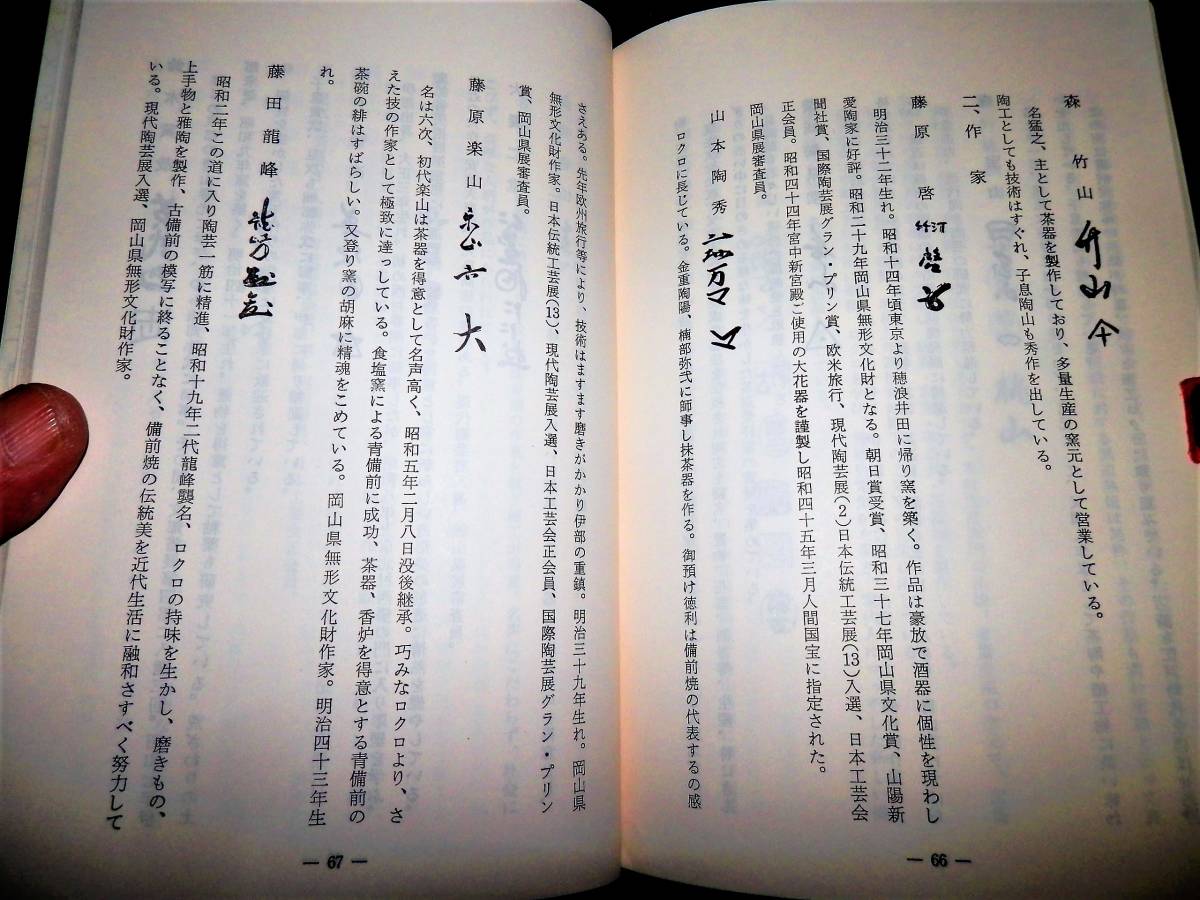 森　竹山　竹山
名猛之、主として茶器を製作しており、多量生産の窯元として営業している。
陶工としても技術はすぐれ、子息陶山も秀作を出している。
二、作　家
藤原　啓　啓
明治三十二年生れ。昭和十四年頃東京より穂浪井田に帰り窯を築く。作品は豪放で酒器に個性を現わし
愛陶家に好評。昭和二十九年岡山県無形文化財となる。朝日賞受賞、昭和三十七年岡山県文化賞、山陽新
聞社賞、国際陶芸展グラン・プリン賞、欧米旅行、現代陶芸展(2)日本伝統工芸展(13)入選、日本工芸会
正会員。昭和四十四年宮中新宮殿ご使用の大花器を謹製し昭和四十五年三月人間国宝に指定された。
岡山県展審査員。
山本陶秀
ロクロに長じている。金重陶陽、楠部弥弌に師事し抹茶器を作る。御預け徳利は備前焼の代表するの感
— 66 —
さえある。先年欧州旅行等により、技術はますます磨きがかかり伊部の重鎮。明治三十九年生れ。岡山県
無形文化財作家。日本伝統工芸展(13)、現代陶芸展入選、日本工芸会正会員、国際陶芸展グラン・プリン
賞、岡山県展審査員。
藤原楽山　大
名は六次、初代楽山は茶器を得意として名声高く、昭和五年二月八日没後継承。巧みなロクロより、さ
えた技の作家として極致に達っしている。食塩窯による青備前に成功、茶器、香炉を得意とする青備前の
茶碗の緋はすばらしい。又登り窯の胡麻に精魂をこめている。岡山県無形文化財作家。明治四十三年生
れ。
藤田龍峰
昭和二年この道に入り陶芸一筋に精進、昭和十九年二代龍峰襲名、ロクロの持味を生かし、磨きもの、
上手物と雅陶を製作、古備前の模写に終ることなく、備前焼の伝統美を近代生活に融和さすべく努力して
いる。現代陶芸展入選、岡山県無形文化財作家。
— 67 —